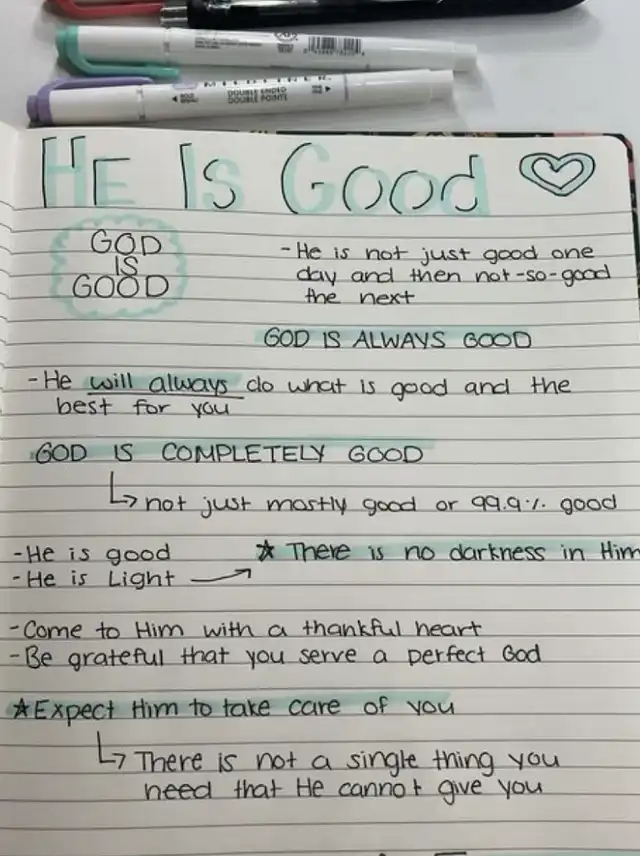 MILDLINER
DOUBLE ENDED
DOUBLE POINTS
HE IS GOOD
GOD
IS
GOOD
- He is not just good one
day and then not-so-good
the next
GOD IS ALWAYS GOOD
- He will always do what is good and the
best for you
GOD IS COMPLETELY GOOD
↳ not just mostly good or 99.9% good
- He is good
★ There is no darkness in Him
- He is Light →
- Come to Him with a thankful heart
- Be grateful that you serve a perfect God
★ Expect Him to take care of you
↳ There is not a single thing you
need that He cannot give you